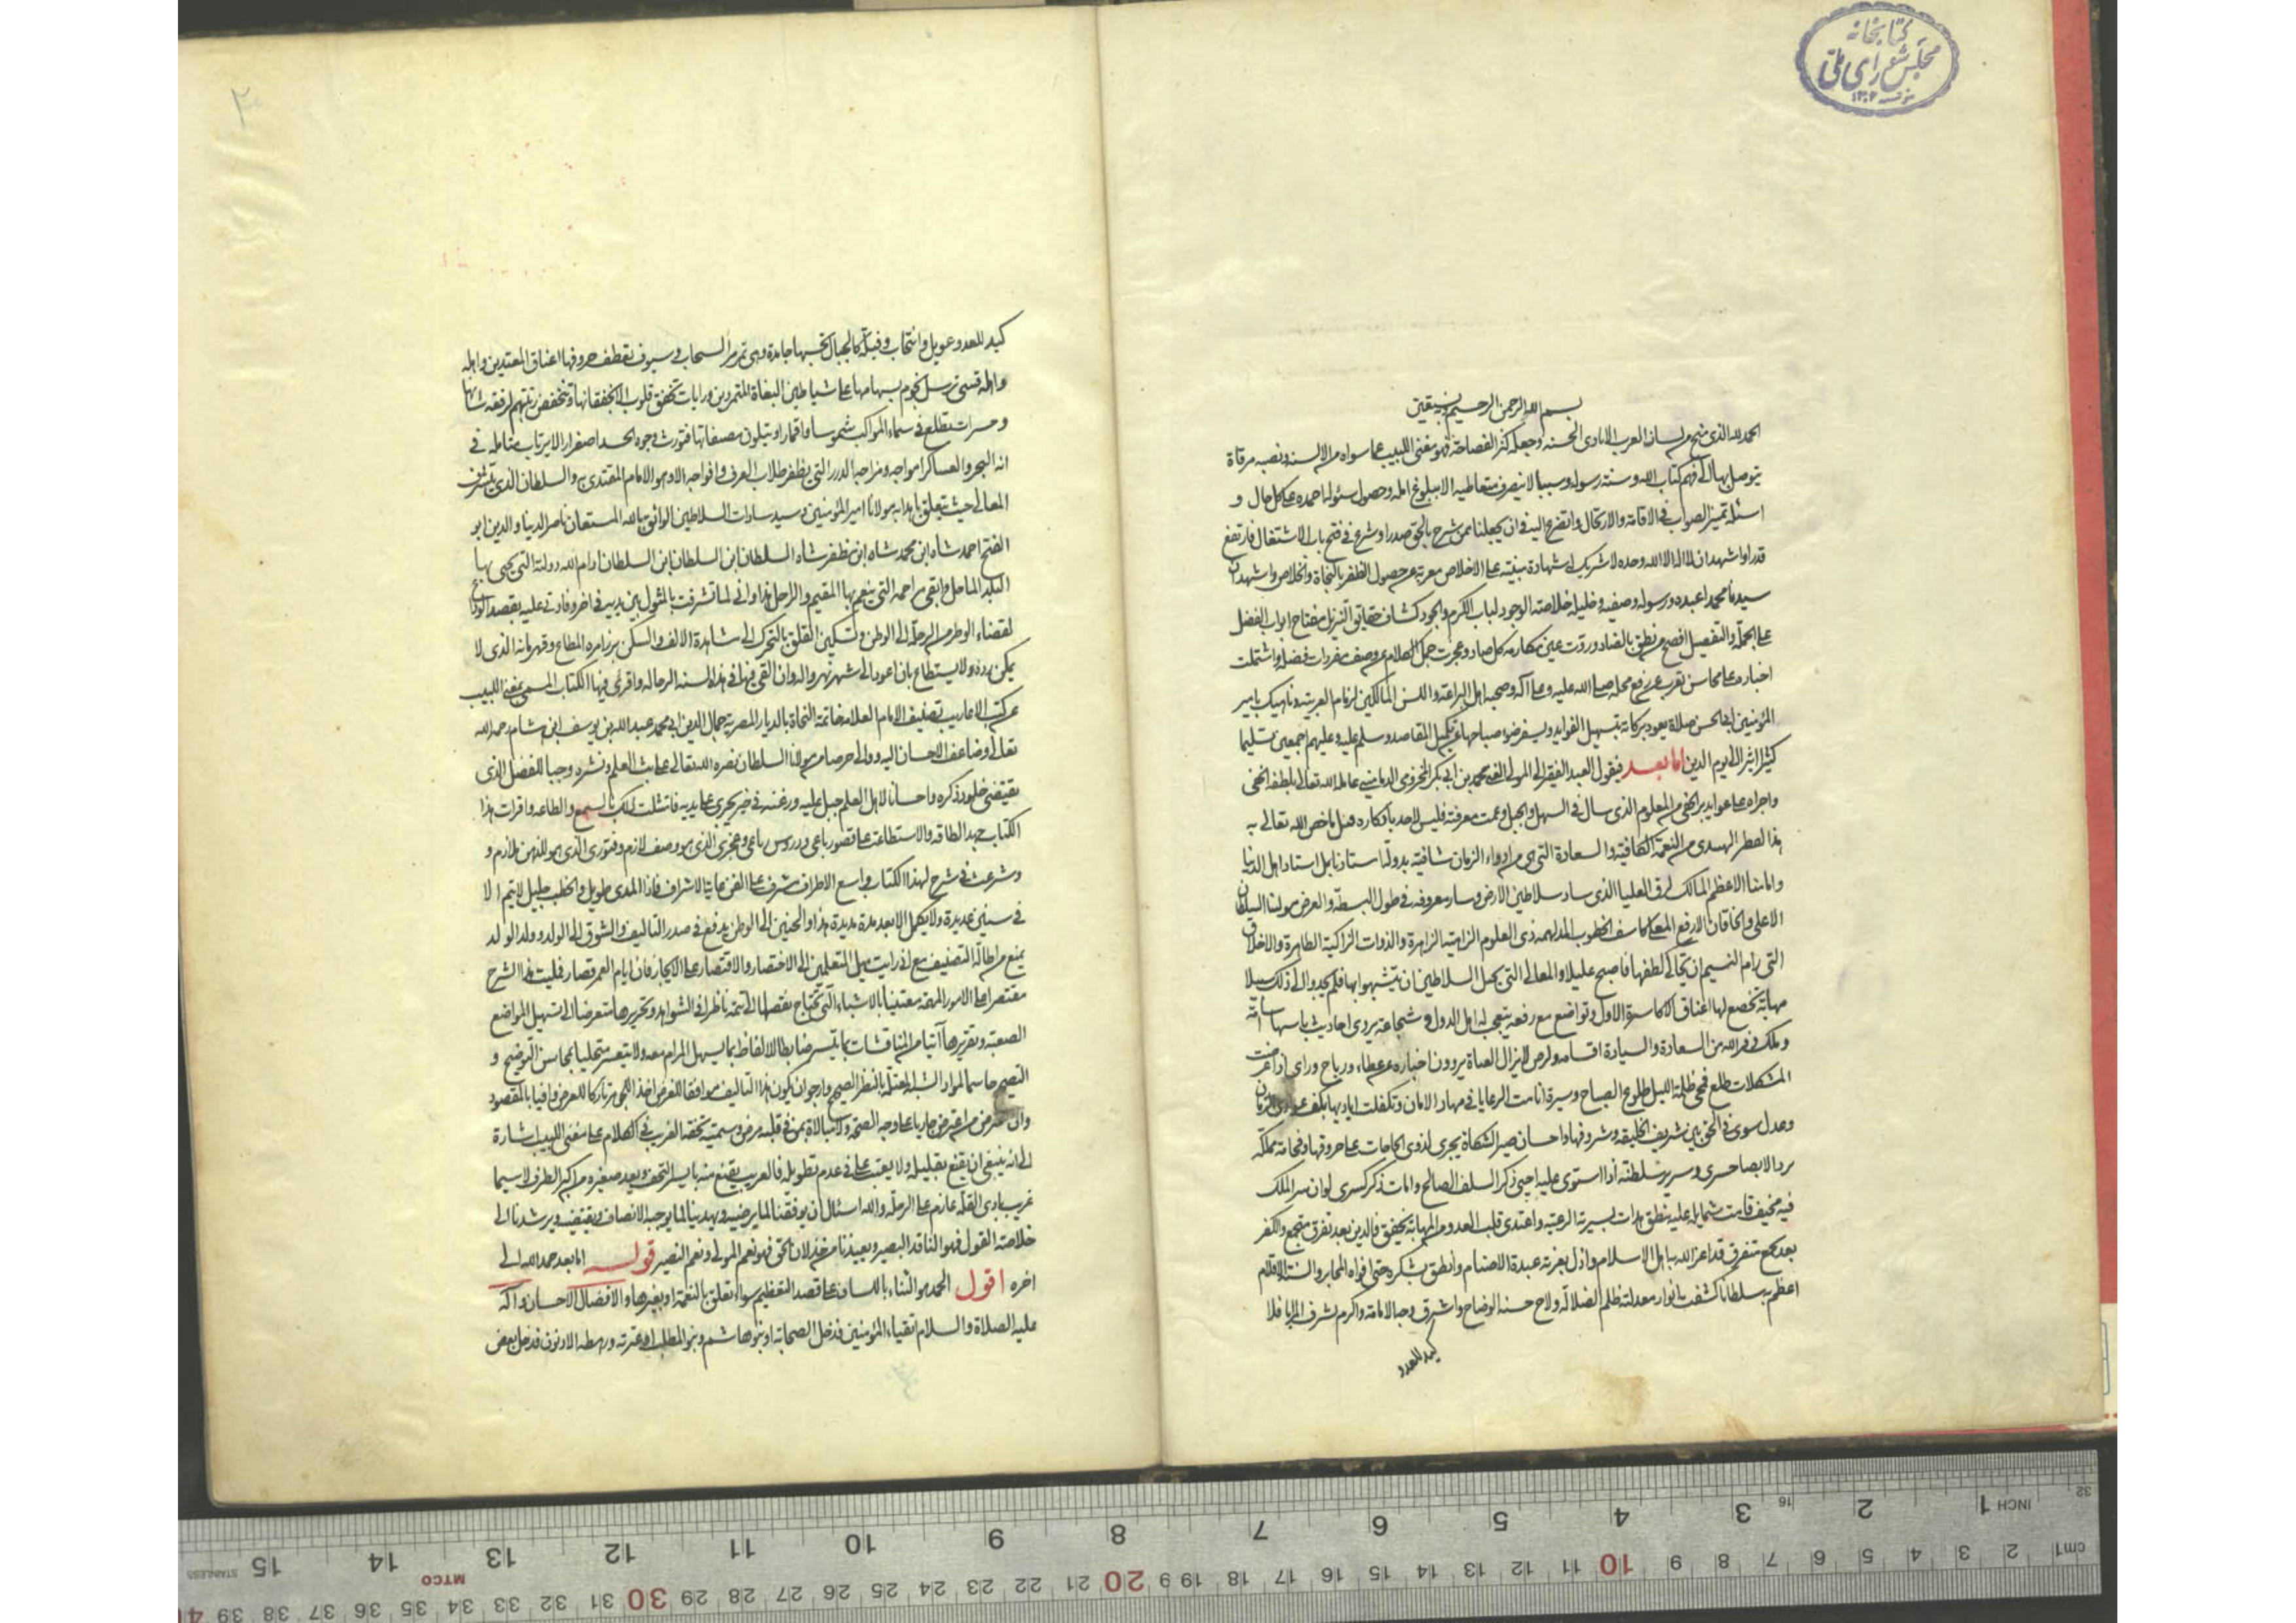 كتابخانه
مجلس شورای ملی
بسم الله الرحمن الرحيم وبه نستعين
الحمد لله الذي منح من لسان العرب الايادي الحسنه وجعله كنز الفصاحة فهو مغني اللبيب عما سواه من الالسنه ونصبه مرقاة
يتوصل بها الى فهم كتاب الله وسنة رسوله وسببا لا ينصرف متعاطيه الا ببلوغ امله وحصول سئوله احمده على كل حال و
اسئله تميز الصواب في الاقامة والارتحال واتضرع اليه في ان يجعلنا ممن شرح بالحق صدرا وشرع في فتح باب الاشتغال فارتفع
قدرا واشهد ان لا اله الا الله وحده لا شريك له شهادة مبنية على الاخلاص معربة عن حصول الظفر بالنجاة والخلاص واشهد ان
سيدنا محمدا عبده ورسوله وصفيه وخليله خلاصة الوجود لباب الكرم والجود كشاف حقايق التنزيل مفتاح ابواب الفضل
على الجملة والتفصيل افصح من نطق بالضاد وروت عين مكارمه كل صاد وعجزت جمل الكلام عن وصف مفردات فضله واشتملت
اخباره على محاسن تعرب عن رفع محله صلى الله عليه وعلى آله وصحبه اهل البراعة واللسن المالكين لزمام العربية وناهيك بامير
المؤمنين ابي الحسن صلاة يعود بركاته بتسهيل الفوايد ويسفر ضوء صباحها عن تكميل المقاصد وسلم عليه وعليهم اجمعين تسليما
كثيرا اثيرا الى يوم الدين اما بعد فيقول العبد الفقير الى المولى الغني محمد بن ابي بكر المخزومي الدماميني عامله الله تعالى بلطفه الخفي
واجراه على عوايد بره الحفي من المعلوم الذي سال في السهل والجبل وعمت معرفته فليس لاحد بانكاره قبل ما خص الله تعالى به
هذا القطر الهندي من النعمة الكافية والسعادة التي هي من ادواء الزمان شافية بدولة استاذنا بل استاد اهل الدنيا
وامامنا الاعظم المالك لرق العليا الذي ساد سلاطين الارض وسار معروفه في طول البسيطة والعرض مولنا السلطان
الاعلى والخاقان الارفع المعلى كاشف الخطوب المدلهمه ذي العلوم الزاهية الزاهرة والذوات الزاكية الطاهرة والاخلاق
التي رام النسيم ان يحاكي لطفها فاصبح عليلا والمعالي التي جهل السلاطين ان يتشبهوا بها فلم يجدوا الى ذلك سبيلا
مهابة تخضع لها اعناق الاكاسرة الاول وتواضع مع رفعة يتعجب له اهل الدول وشجاعة يروي احاديث باسها
وملك في قراه من السعادة والسيادة اقسامه وكرم لا يزال العفاة يروون اخباره عن عطاء ورباح وراى اذا عرضت
المشكلات طلع فمحى ظلمة الليل طلوع الصباح وسيرة انامت الرعايا في مهاد الامان وتكفلت اياديها بكف عوادي الزمان
وعدل سوى في الحق بين شريف الخليقه ومشروفها واحسان صير الشكاة يجري لذوي الحاجات على حروفها وفخامة مملكة
يرد الابصار حسرى وسرير سلطنة اذا استوى عليه احيى ذكر السلف الصالح وامات ذكر كسرى لو ان سر الملك
فيه مخيف قامت شمايله عليه ينطق هدات لسيرته الرعية واغتدى قلب العدو من المهابة يخفق فالدين بعد تفرق متجمع والكفر
بعد تجمع متفرق قد اعز الله به اهل الاسلام واذل بعزته عبدة الاصنام وانطق بشكره حتى افواه المحابر والسنة الاقلام
اعظم به سلطانا كشفت بانوار معدلته ظلم الضلالة ولاح حسنه الوضاح واشرق وجه الامامة واكرم بشرف المزايا فلا
كيد للعدو
كيد للعدو عويل وانتحاب وفيلة كالجبال تحسبها جامدة وهي تمر مر السحاب وسيوف تقطف حروفها اعناق المعتدين واهلة
واهلة قسي ترسل نجوم سهامها على شياطين البغاة المتمردين ورايات تخفق قلوب الاعداء لخفقانها وتنخفض رتبتهم لرفعة شانها
ومسرات تطلع في سماء المواكب شموسا واقمارا ويتلون مصفاتها فتورث وجوه الحسد اصفرارا لا يرتاب متامله في
انه البحر والعساكر امواجه ومزاجه الدرر التي يظفر طلاب العرف وافواجه الا وهو الامام المقتدى به والسلطان الذي تتشرف
المعالي حيث يتعلق باهدابه مولانا امير المؤمنين وسيد سادات السلاطين الواثق بالله المستعان ناصر الدنيا والدين ابو
الفتح احمد شاه ابن محمد شاه ابن مظفر شاه السلطان ابن السلطان ابن السلطان ادام الله دولته التي يحيى بها
البلد الماحل وابقى مراحمه التي ينعم بها المقيم والراحل هذا واني لما تشرفت بالمثول بين يديه في اخر وفادتي عليه بقصد الوداع
لقضاء الوطر من الرحلة الى الوطن وتسكين القلق بالتحرك الى مشاهدة الالف والسكن برز امره المطاع وقهرمانه الذي لا
يمكن رده ولا يستطاع بان اعود الى شهر نهرواله وان القي فيها في هذه السنه الرحاله واقرئ فيها الكتاب المسمى بمغني اللبيب
عن كتب الاعاريب تصنيف الامام العلامه خاتمة النحاة بالديار المصرية جمال الدين ابي محمد عبد الله بن يوسف ابن هشام رحمه الله
تعالى وضاعف الاحسان اليه ووالى حرصا من مولانا السلطان نصره الله تعالى على بث العلم ونشره وجبا للفضل الذي
يقتضي خلود ذكره واحسانا لاهل العلم جبل عليه ورغبة في خير يجري على يديه فامتثلت ذلك بالسمع والطاعه واقرات هذا
الكتاب جهد الطاقه والاستطاعة على قصور باعي ودروس رباعي وعجزي الذي هو وصف لازم وفتوري الذي هو للذهن ملازم و
وشرعت في شرح لهذا الكتاب واسع الاطراف مشرف على الفن غاية الاشراف فاذا المدى طويل والخطب جليل لا يتم الا
في سنين عديدة ولا يكمل الا بعد مدة مديدة هذا والحنين الى الوطن يدفع في صدر التاليف والشوق الى الولد وولد الولد
يمنع من اطالة التصنيف مع اني رايت ميل المتعلمين الى الاختصار والاقتصار على الايجاز فان ايام العمر قصار فمليت هذا الشرح
مقتصرا على الامور المهمة معتنيا بالاشياء التي تحتاج بفضلها الى تتمة ناظرا في الشواهد وتحريرها متعرضا الى تسهيل المواضع
الصعبة وتقريرها آتيا من المناقشات بما يتيسر ضابطا لالفاظ بما يسهل المرام معه ولا يتعسر متحليا بمحاسن التوضيح و
التصحيح حاسما لمواد الشبه المعتلة بالنظر الصحيح وارجو ان يكون هذا التاليف موافقا للغرض اخذا للجوهر تاركا للعرض وافيا بالمقصود
وان اعترض من معترض جاريا على وجه الصحة ولا مبالاة بمن في قلبه مرض وسميته تحفة الغريب في الكلام على مغني اللبيب اشارة
الى انه ينبغي ان يقنع بقليله ولا يعتب على في عدم تطويله فالغريب يقنع منه بايسر التحف ويعد صغيره من اكبر الطرف لا سيما
غريب بادي القلة عازم على الرحلة والله اسئال ان يوفقنا لما يرضيه ويهدينا لما يوجبه الانصاف ويقتضيه ويرشدنا الى
خلاصة القول فهو الناقد البصير ويعيذنا من خذلان الحق فهو نعم المولى ونعم النصير قوله اما بعد حمد الله الى
اخره اقول الحمد هو الثناء باللسان على قصد التعظيم سواء تعلق بالنعمة او بغيرها والافضال الاحسان وآله
عليه الصلاة والسلام اتقياء المؤمنين فدخل الصحابة او بنو هاشم وبنو المطلب او عترته ورهطه الادنون فدخل بعض